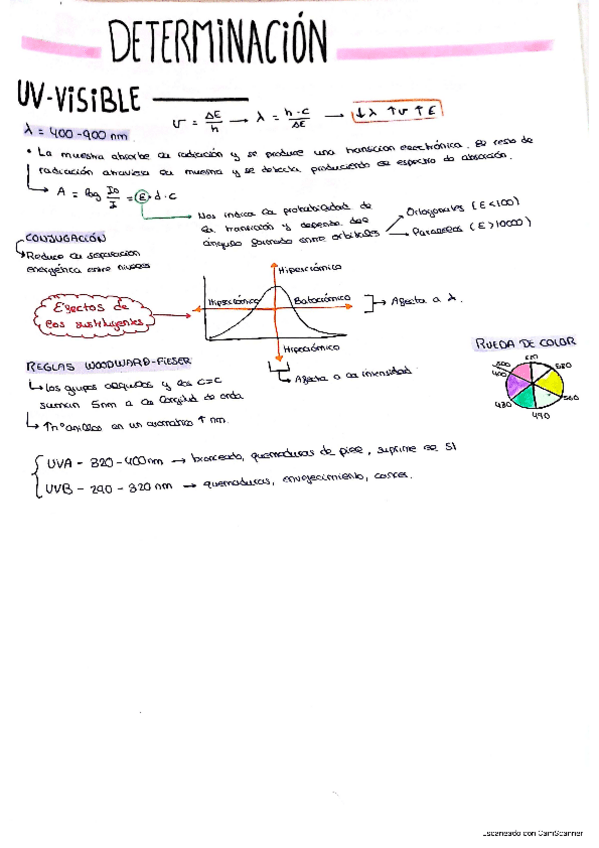 DETERMINACIÓN
UV-VISIBLE
ν = ΔE/h → λ = h·c/ΔE → ↓λ ↑ν ↑E
λ = 400-900 nm
• La muestra absorbe la radiación y se produce una transición electrónica. El resto de
radiación atraviesa la muestra y se detecta, produciendo el espectro de absorción.
A = log I0/I = E·d·c
Nos indica la probabilidad de
la transición y depende del
ángulo formado entre orbitales
Ortogonales (E<100)
Paralelos (E>10000)
CONJUGACIÓN
Reduce la separación
energética entre niveles
Efectos de
los sustituyentes
Hipercrómico
Hipsocrómico
Batocrómico
Hipocrómico
Afecta a λ.
Afecta a la intensidad
RUEDA DE COLOR
620
580
560
490
430
400
800
REGLAS WOODWARD-FIESER
los grupos alquilos y los C=C
suman 5nm a la longitud de onda
↑nº anillos en un aromático ↑ nm.
UVA - 320-400nm → bronceado, quemaduras de piel, suprime el SI
UVB - 290 - 320 nm → quemaduras, envejecimiento, cáncer.
Escaneado con CamScanner